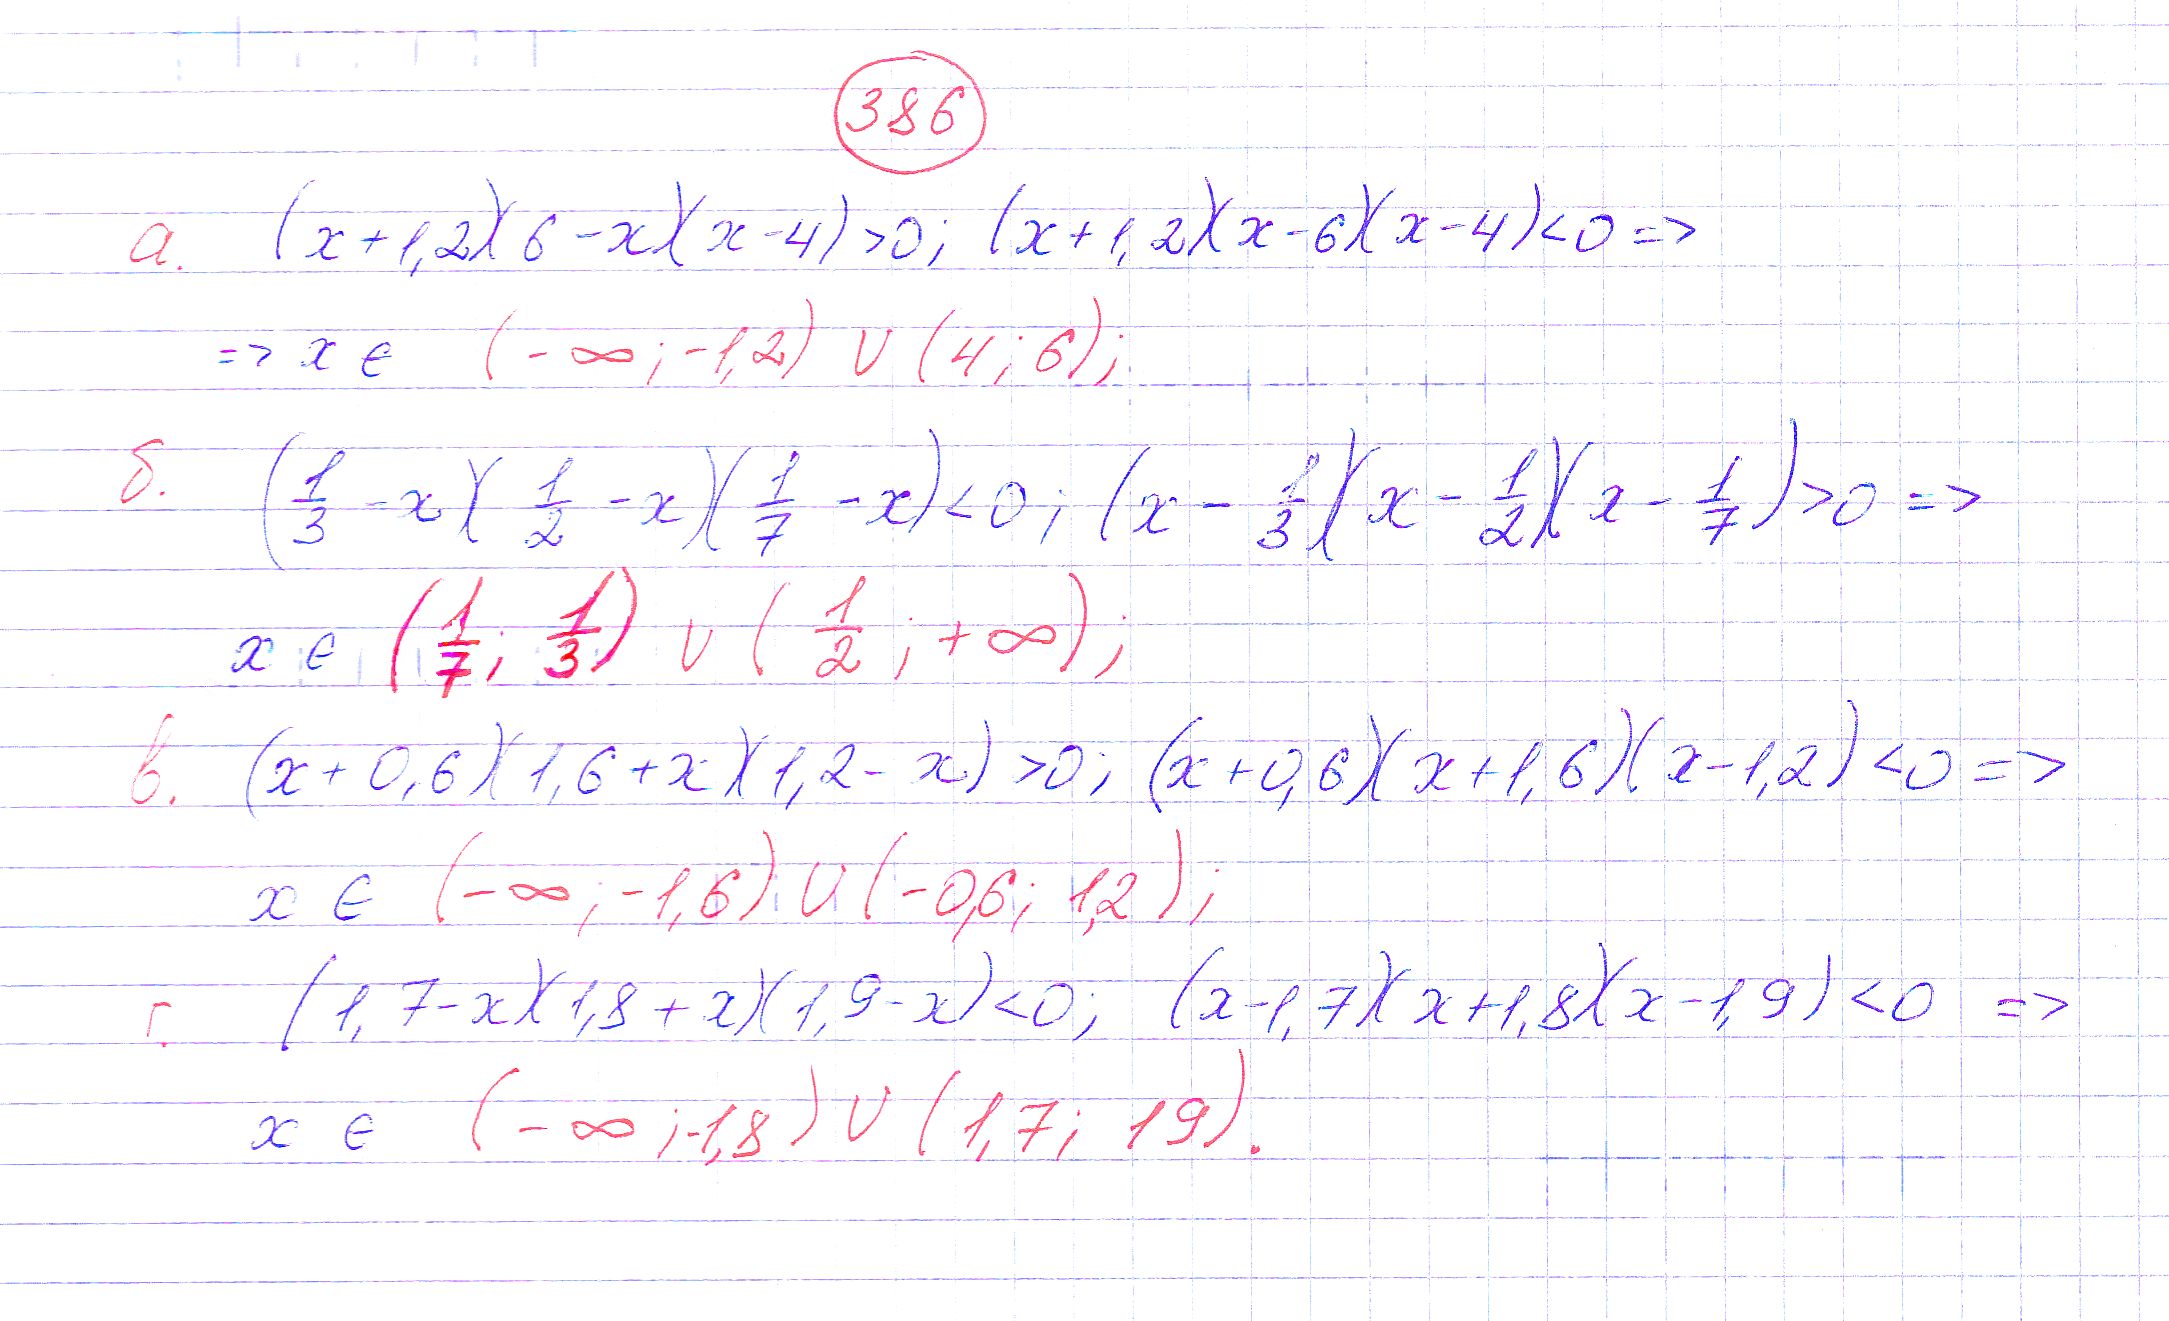 386
а. (x+1,2)(6-x)(x-4)>0; (x+1,2)(x-6)(x-4)<0 =>
=> x ∈ (-∞; -1,2) ∪ (4; 6);
б. (1/3 -x)(1/2 -x)(1/7 -x)<0; (x- 1/3)(x- 1/2)(x- 1/7)>0 =>
x ∈ (1/7; 1/3) ∪ (1/2; +∞);
в. (x+0,6)(1,6+x)(1,2-x)>0; (x+0,6)(x+1,6)(x-1,2)<0 =>
x ∈ (-∞; -1,6) ∪ (-0,6; 1,2);
г. (1,7-x)(1,8+x)(1,9-x)<0; (x-1,7)(x+1,8)(x-1,9)<0 =>
x ∈ (-∞; -1,8) ∪ (1,7; 19).